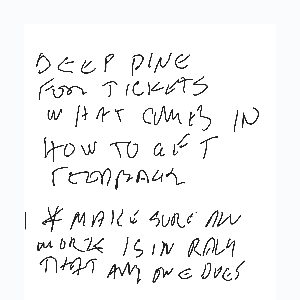 DEEP DINE
FOR TICKETS
WHAT COMES IN
HOW TO GET
FEEDBACK
* MAKE SURE ALL
WORK IS IN RALLY
THAT ANYONE DOES